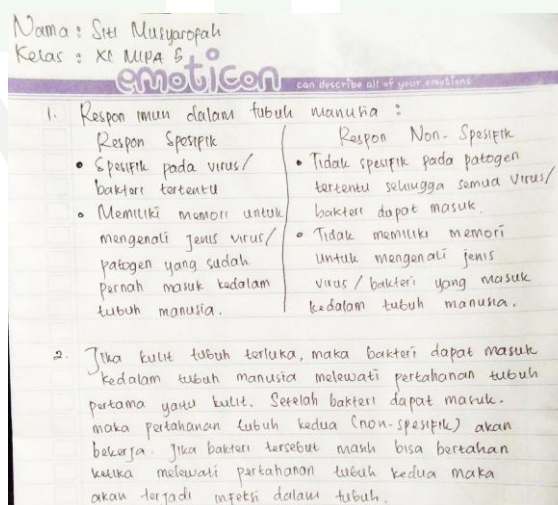 Nama : Siti Musyaropah
Kelas : XI MIPA 5
emoticon can describe all of your emotions
1. Respon imun dalam tubuh manusia :
Respon Spesifik
• Spesifik pada virus/
bakteri tertentu
• Memiliki memori untuk
mengenali jenis virus/
patogen yang sudah
pernah masuk kedalam
tubuh manusia.
Respon Non-Spesifik
• Tidak spesifik pada patogen
tertentu sehingga semua virus/
bakteri dapat masuk.
• Tidak memiliki memori
untuk mengenali jenis
virus / bakteri yang masuk
kedalam tubuh manusia.
2. Jika kulit tubuh terluka, maka bakteri dapat masuk
kedalam tubuh manusia melewati pertahanan tubuh
pertama yaitu kulit. Setelah bakteri dapat masuk.
maka pertahanan tubuh kedua (non-spesifik) akan
bekerja. Jika bakteri tersebut masih bisa bertahan
ketika melewati pertahanan tubuh kedua maka
akan terjadi infeksi dalam tubuh.